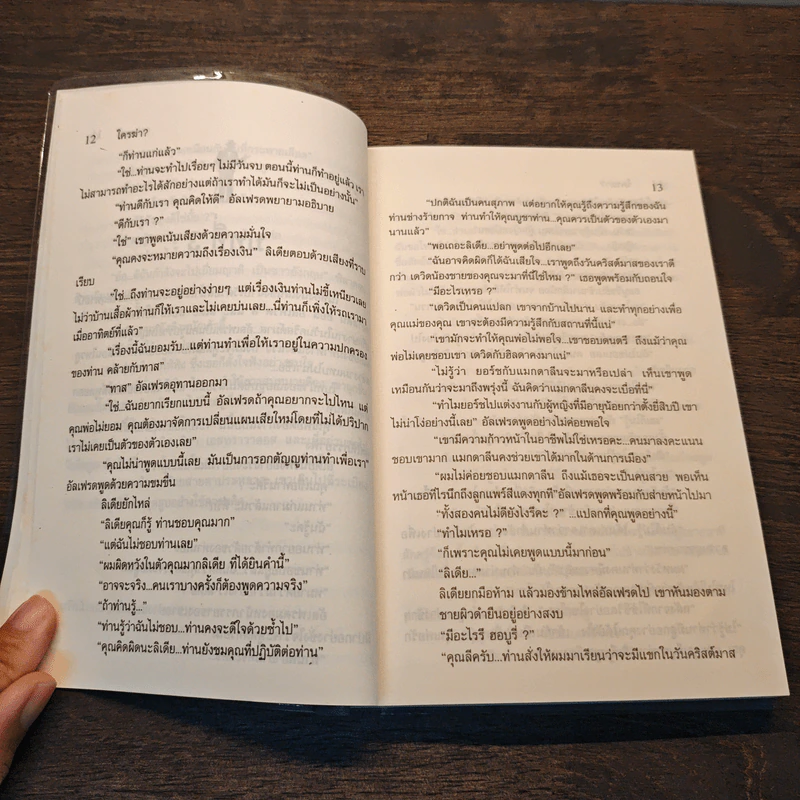 12 ใครฆ่า?
"ก็ท่านแก่แล้ว"
"ใช่...ท่านจะทำไปเรื่อยๆ ไม่มีวันจบ ตอนนี้ท่านก็ทำอยู่แล้ว เรา
ไม่สามารถทำอะไรได้สักอย่างแต่ถ้าเราทำได้มันก็จะไม่เป็นอย่างนั้น"
"ท่านดีกับเรา คุณคิดให้ดี" อัลเฟรดพยายามอธิบาย
"ดีกับเรา ?"
"ใช่" เขาพูดเน้นเสียงด้วยความมั่นใจ
"คุณคงจะหมายความถึงเรื่องเงิน" ลิเดียตอบด้วยเสียงที่ราบ
เรียบ
"ใช่...ถึงท่านจะอยู่อย่างง่ายๆ แต่เรื่องเงินท่านไม่ขี้เหนียวเลย
ไม่ว่าบ้านเสื้อผ้าท่านก็ให้เราและไม่เคยบ่นเลย...นี่ท่านก็เพิ่งให้รถเรามา
เมื่ออาทิตย์ที่แล้ว"
"เรื่องนี้ฉันยอมรับ...แต่ท่านทำเพื่อให้เราอยู่ในความปกครอง
ของท่าน คล้ายกับทาส"
"ทาส" อัลเฟรดอุทานออกมา
"ใช่...ฉันอยากเรียกแบบนี้ อัลเฟรดถ้าคุณอยากจะไปไหน แต่
คุณพ่อไม่ยอม คุณต้องมาจัดการเปลี่ยนแผนเสียใหม่โดยที่ไม่ได้ปริปาก
เราไม่เคยเป็นตัวของตัวเองเลย"
"คุณไม่น่าพูดแบบนี้เลย มันเป็นการอกตัญญูท่านทำเพื่อเรา"
อัลเฟรดพูดด้วยความขมขื่น
ลิเดียยักไหล่
"ลิเดียคุณก็รู้ ท่านชอบคุณมาก"
"แต่ฉันไม่ชอบท่านเลย"
"ผมผิดหวังในตัวคุณมากลิเดีย ที่ได้ยินคำนี้"
"อาจจะจริง...คนเราบางครั้งก็ต้องพูดความจริง"
"ถ้าท่านรู้..."
"ท่านรู้ว่าฉันไม่ชอบ...ท่านคงจะดีใจด้วยซ้ำไป"
"คุณคิดผิดนะลิเดีย...ท่านยังชมคุณที่ปฏิบัติต่อท่าน"
13
"ปกติฉันเป็นคนสุภาพ แต่อยากให้คุณรู้ถึงความรู้สึกของฉัน
ท่านช่างร้ายกาจ ท่านทำให้คุณบูชาท่าน...คุณควรเป็นตัวของตัวเองมา
นานแล้ว"
"พอเถอะลิเดีย...อย่าพูดต่อไปอีกเลย"
"ฉันอาจคิดผิดก็ได้ฉันเสียใจ...เราพูดถึงวันคริสต์มาสของเราดี
กว่า เดวิดน้องชายของคุณจะมาที่นี่ใช่ไหม ?" เธอพูดพร้อมกับถอนใจ
"มีอะไรเหรอ ?"
"เดวิดเป็นคนแปลก เขาจากบ้านไปนาน และทำทุกอย่างเพื่อ
คุณแม่ของคุณ เขาจะต้องมีความรู้สึกกับสถานที่นี้แน่"
"เขามักจะทำให้คุณพ่อไม่พอใจ...เขาชอบดนตรี ถึงแม้ว่าคุณ
พ่อไม่เคยชอบเขา เดวิดกับฮิลดาคงมาแน่"
"ไม่รู้ว่า ยอร์ชกับแมกดาลีนจะมาหรือเปล่า เห็นเขาพูด
เหมือนกันว่าจะมาถึงพรุ่งนี้ ฉันคิดว่าแมกดาลีนคงจะเบื่อที่นี่"
"ทำไมยอร์ชไปแต่งงานกับผู้หญิงที่มีอายุน้อยกว่าตั้งยี่สิบปี เขา
ไม่น่าโง่อย่างนี้เลย" อัลเฟรดพูดอย่างไม่ค่อยพอใจ
"เขามีความก้าวหน้าในอาชีพไม่ใช่เหรอคะ...คนมาลงคะแนน
ชอบเขามาก แมกดาลีนคงช่วยเขาได้มากในด้านการเมือง"
"ผมไม่ค่อยชอบแมกดาลีน ถึงแม้เธอจะเป็นคนสวย พอเห็น
หน้าเธอทีไรนึกถึงลูกแพร์สีแดงทุกที"อัลเฟรดพูดพร้อมกับส่ายหน้าไปมา
"ทั้งสองคนไม่ดียังไงรึคะ ?" ...แปลกที่คุณพูดอย่างนี้"
"ทำไมเหรอ ?"
"ก็เพราะคุณไม่เคยพูดแบบนี้มาก่อน"
"ลิเดีย..."
ลิเดียยกมือห้าม แล้วมองข้ามไหล่อัลเฟรดไป เขาหันมองตาม
ชายผิวดำยืนอยู่อย่างสงบ
"มีอะไรรึ ฮอบูรี่ ?"
"คุณลีครับ...ท่านสั่งให้ผมมาเรียนว่าจะมีแขกในวันคริสต์มาส